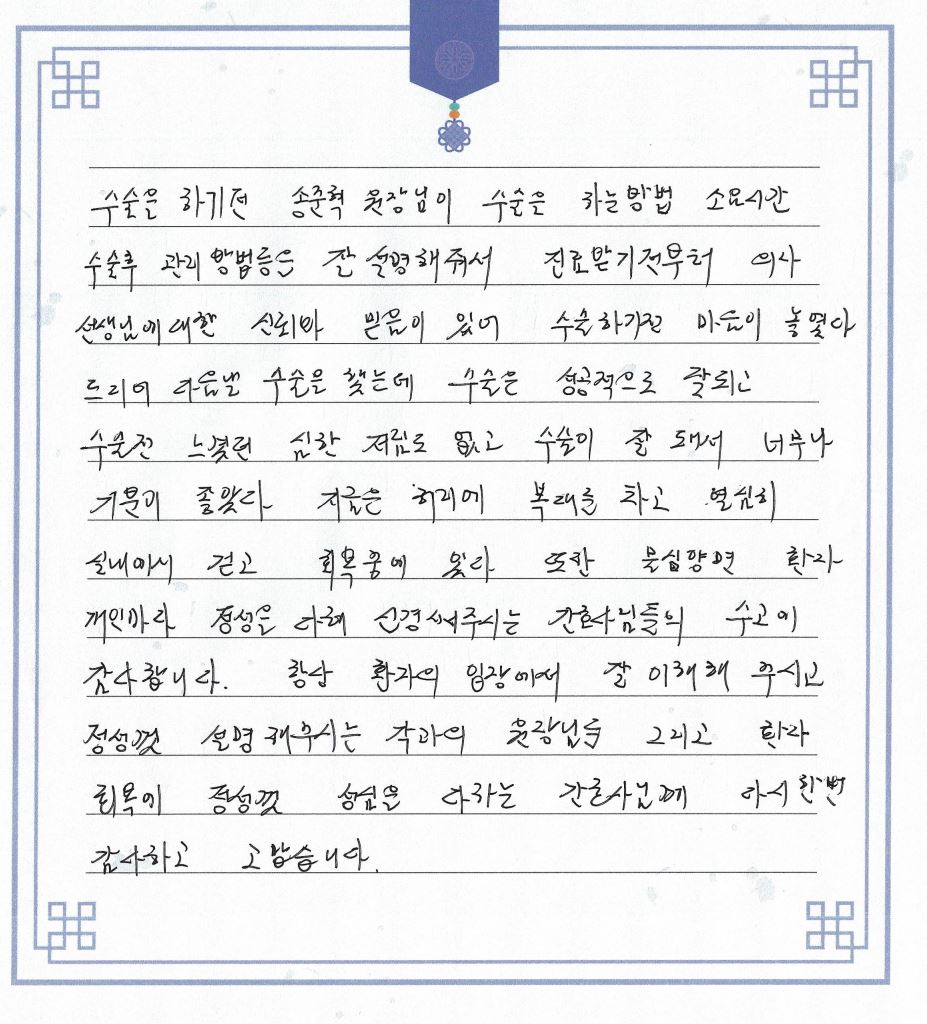 수술을 하기전 송준혁 원장님이 수술은 하는방법 소요시간
수술후 관리 방법등을 잘 설명해줘서 진료받기전부터 의사
선생님에대한 신뢰와 믿음이 있어 수술하기전 마음이 놓였다
드디어 다음날 수술을 했는데 수술은 성공적으로 잘되고
수술전 느꼈던 심한 저림도 없고 수술이 잘 돼서 너무나
기분이 좋았다. 지금은 허리에 복대를 차고 열심히
실내에서 걷고 회복중에 있다 또한 물심양면 환자
개인마다 정성을 다해 신경써주시는 간호사님들의 수고에
감사합니다. 항상 환자의 입장에서 잘 이해해 주시고
정성껏 설명해주시는 각과의 원장님들 그리고 환자
회복에 정성껏 성심을 다하는 간호사님께 다시한번
감사하고 고맙습니다.